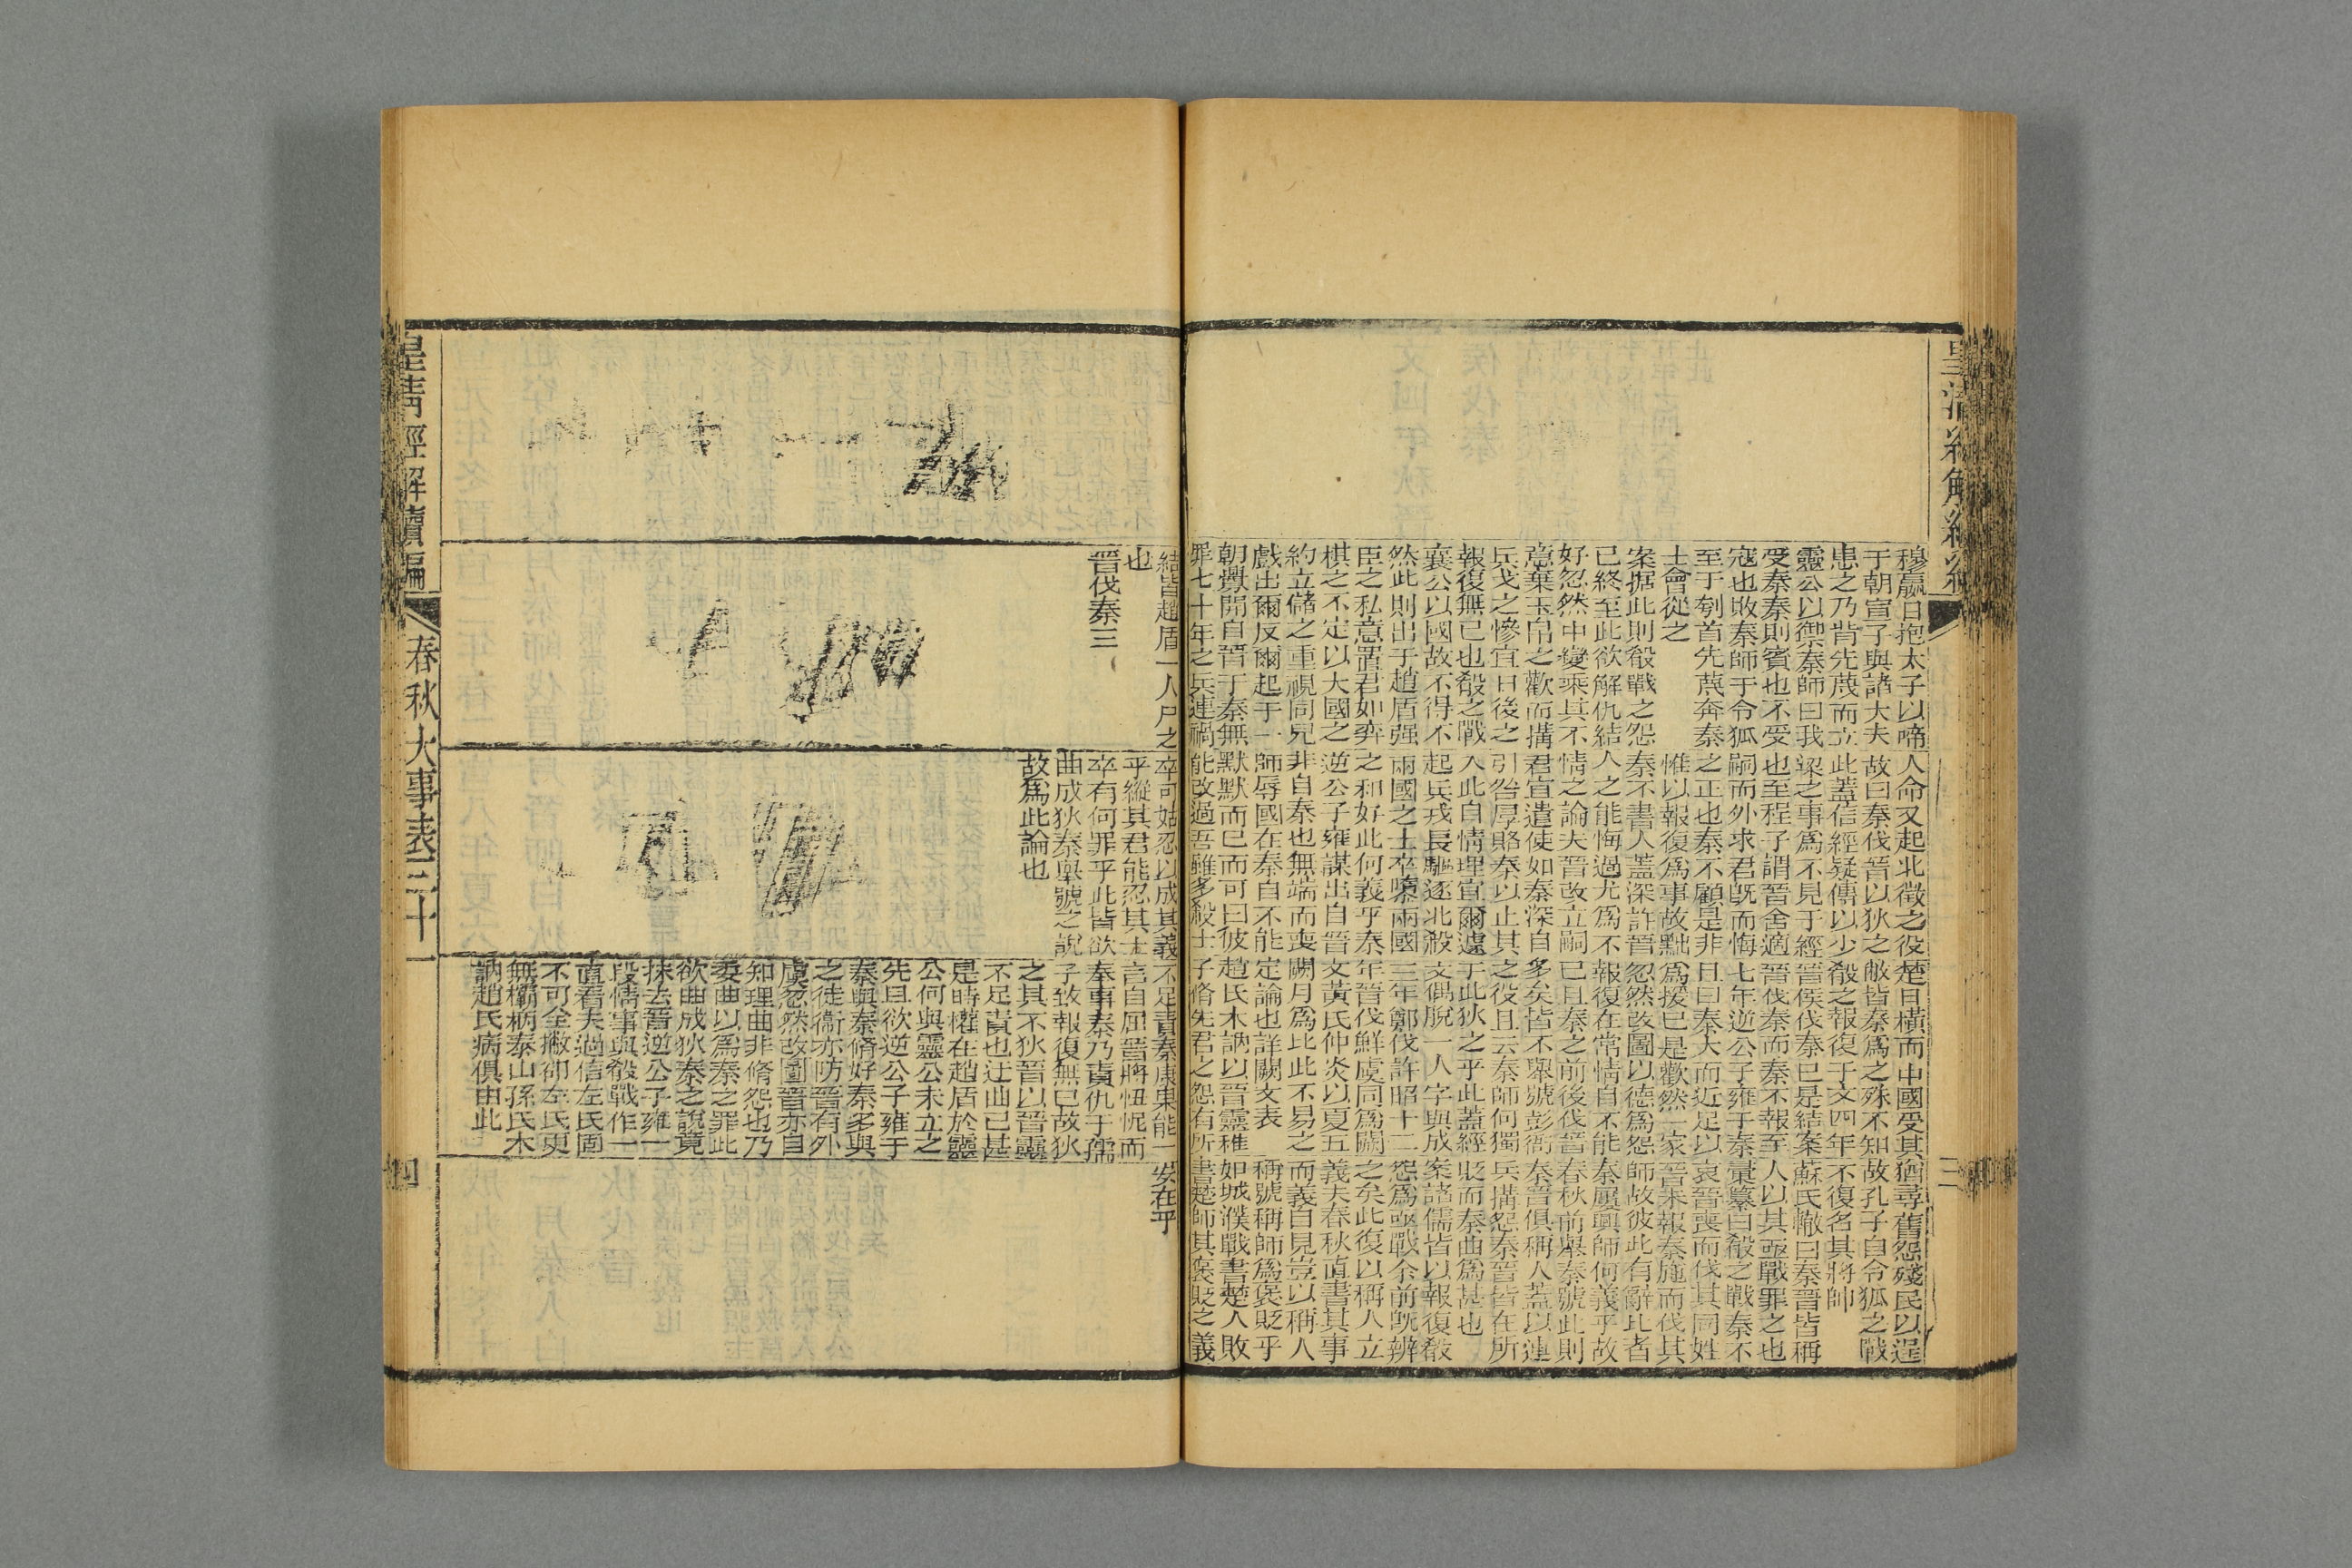 皇清經解續編
三
穆嬴日抱太子以啼
于朝宣子與諸大夫
患之乃背先蔑而立
靈公以禦秦師曰我
受秦秦則賓也不受
寇也敗秦師于令狐
至于刳首先蔑奔秦
士會從之
案据此則殽戰之怨
已終至此欲解仇結
好忽然中變乘其不
意棄玉帛之歡而搆
兵戈之慘宜日後之
報復無已也殽之戰
襄公以國故不得不
然此則出于趙盾强
臣之私意置君如弈
棋之不定以大國之
約立儲之重視同兒
戲出爾反爾起于一
朝釁開自晉于秦無
罪七十年之兵連禍
人命又起北徵之役
故曰秦伐晉以狄之
此蓋信經疑傳以少
梁之事為不見于經
也至程子謂晉舍適
嗣而外求君既而悔
之正也秦不顧是非
惟以報復為事故黜
秦不書人蓋深許晉
人之能悔過尤為不
情之論夫晉改立嗣
君宜遣使如秦深自
引咎厚賂秦以止其
入此自情理宜爾遽
起兵戎長驅逐北殺
兩國之士卒隳兩國
之和好此何義乎秦
逆公子雍謀出自晉
非自秦也無端而喪
師辱國在秦自不能
默默而已而可曰彼
能改過吾雖多殺士
楚日橫而中國受其
敝皆秦為之殊不知
殽之報復于文四年
晉侯伐秦已是結案
晉伐秦而秦不報至
七年逆公子雍于秦
且曰秦大而近足以
為援已是歡然一家
忽然改圖以德為怨
報復在常情自不能
已且秦之前後伐晉
多矣皆不舉號彭衙
之役且云秦師何獨
于此狄之乎此蓋經
文偶脫一人字與成
三年鄭伐許昭十二
年晉伐鮮虞同為闕
文黃氏仲炎以夏五
闕月為比此不易之
定論也詳闕文表
趙氏木訥以晉靈稚
子脩先君之怨有所
猶尋舊怨殘民以逞
故孔子自令狐之戰
不復名其將帥
蘇氏轍曰秦晉皆稱
人以其亟戰罪之也
彙纂曰殽之戰秦不
哀晉喪而伐其同姓
晉未報秦施而伐其
師故彼此有辭此者
秦屢興師何義乎故
春秋前舉秦號此則
秦晉俱稱人蓋以連
兵搆怨秦晉皆在所
貶而秦曲為甚也
案諸儒皆以報復殽
怨為亟戰余前既辨
之矣此復以稱人立
義夫春秋直書其事
而義自見豈以稱人
稱號稱師為褒貶乎
如城濮戰書楚人敗
書楚師其褒貶之義
結皆趙盾一人尸之
也
晉伐秦三
卒可姑忍以成其義
乎縱其君能忍其士
卒有何罪乎此皆欲
曲成狄秦與號之說
故為此論也
不足責秦康果能一
言自屈晉將忸怩而
奉事秦乃責仇于孺
子致報復無已故狄
之其不狄晉以晉靈
不足責也迂曲已甚
是時權在趙盾於靈
公何與靈公未立之
先且欲逆公子雍于
秦與秦脩好秦多與
之徒衞亦防晉有外
虞忽然改圖晉亦自
知理曲非脩怨也乃
委曲以為秦之罪此
欲曲成狄秦之說竟
抹去晉逆公子雍一
段情事與殽戰作一
直看夫過信左氏固
不可全撇卻左氏更
無欛柄泰山孫氏木
訥趙氏病俱由此
安在乎
皇清經解續編
春秋大事表三十一
四